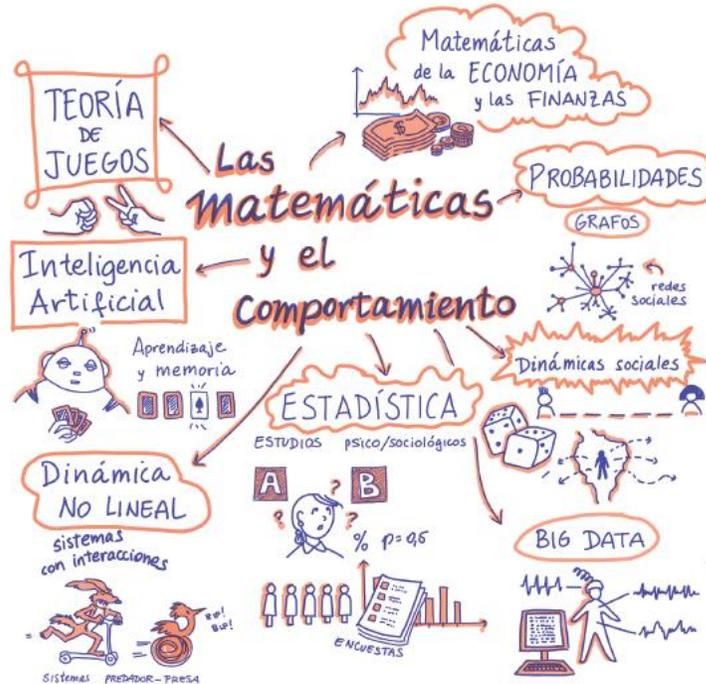 Las
Matemáticas
y el
Comportamiento
TEORÍA
DE
JUEGOS
Matemáticas
de la ECONOMÍA
y las FINANZAS
$
PROBABILIDADES
GRAFOS
redes
sociales
Inteligencia
Artificial
Aprendizaje
y memoria
Dinámicas sociales
ESTADÍSTICA
ESTUDIOS psico/sociológicos
A B
? ? ? ?
% p=0,5
ENCUESTAS
Dinámica
NO LINEAL
sistemas
con interacciones
BIP!
BIP!
Sistemas PREDADOR-PRESA
BIG DATA